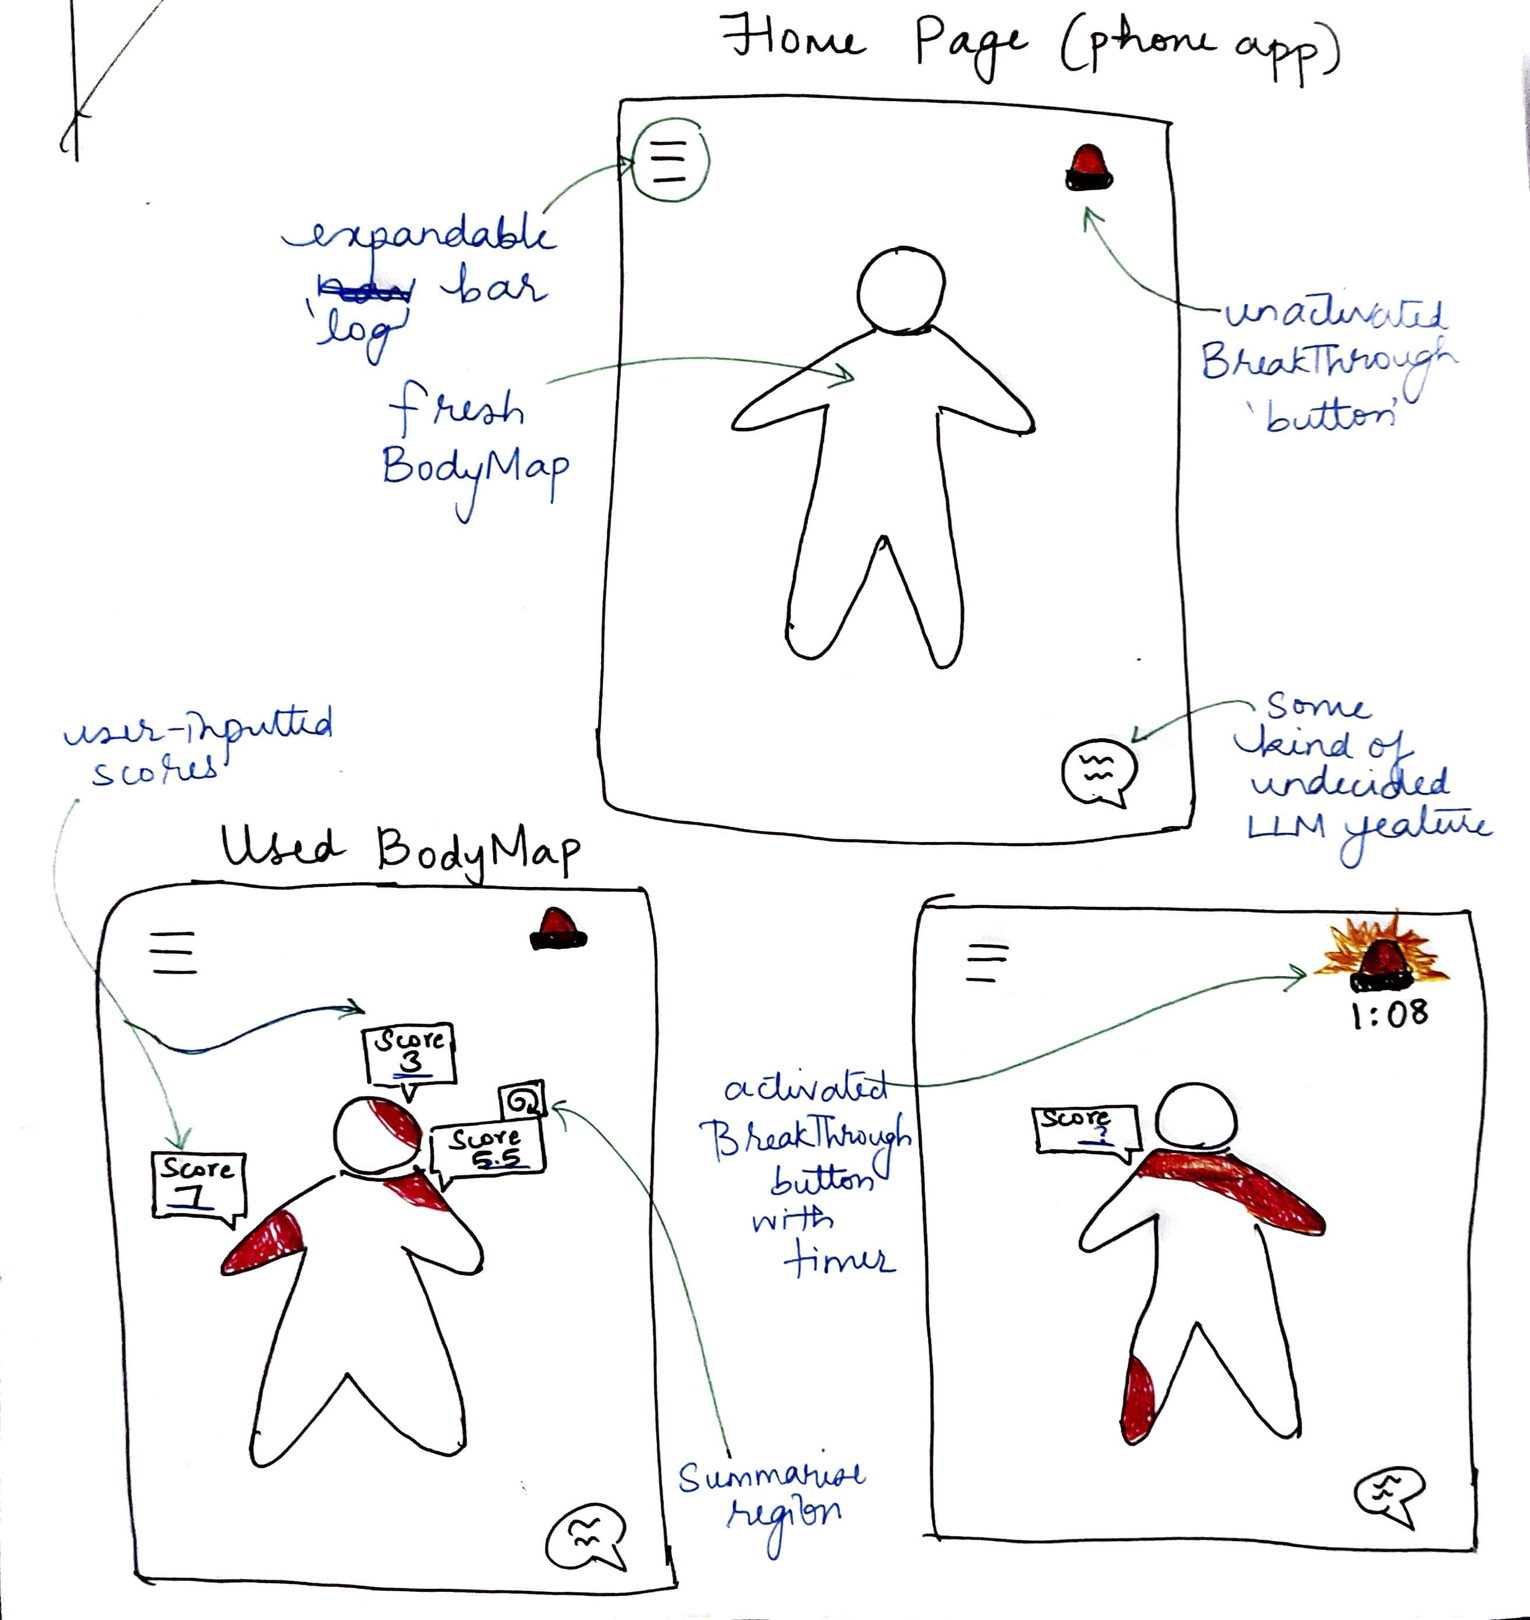 Home Page (phone app)
expandable
bar
'log'
fresh
BodyMap
unactivated
BreakThrough
'button'
some
kind of
undecided
LLM feature
user-inputted
scores
Used BodyMap
Score
3
Score
5.5
Score
7
Summarise
region
1:08
activated
BreakThrough
button
with
timer
Score
?